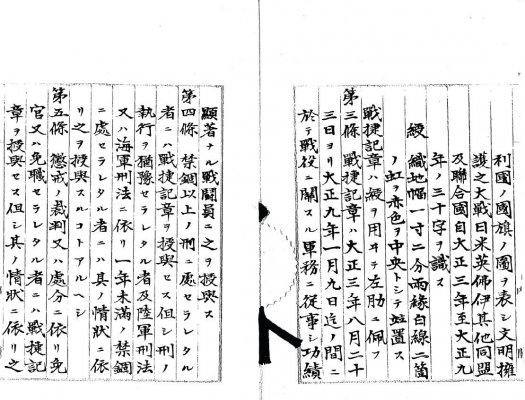 利國ノ國旗ノ圖ヲ表シ文明擁
護之大戰日米英佛伊其他同盟
及聯合國自大正三年至大正九
年ノ三十字ヲ識ス
綬 織地幅一寸二分兩緣白線二箇
ノ虹ヲ赤色ヲ中央トシテ竝置ス
戰捷記章ハ綬ヲ用ヰテ左肋ニ佩フ
第三條 戰捷記章ハ大正三年八月二十
三日ヨリ大正九年一月九日迄ノ間ニ
於テ戰役ニ關スル軍務ニ從事シ功績
顯著ナル戰鬪員ニ之ヲ授與ス
第四條 禁錮以上ノ刑ニ處セラレタル
者ニハ戰捷記章ヲ授與セス但シ刑ノ
執行ヲ猶豫セラレタル者及陸軍刑法
又ハ海軍刑法ニ依リ一年未滿ノ禁錮
ニ處セラレタル者ニハ其ノ情狀ニ依
リ之ヲ授與スルコトアルヘシ
第五條 懲戒ノ裁判又ハ處分ニ依リ免
官又ハ免職セラレタル者ニハ戰捷記
章ヲ授與セス但シ其ノ情狀ニ依リ之